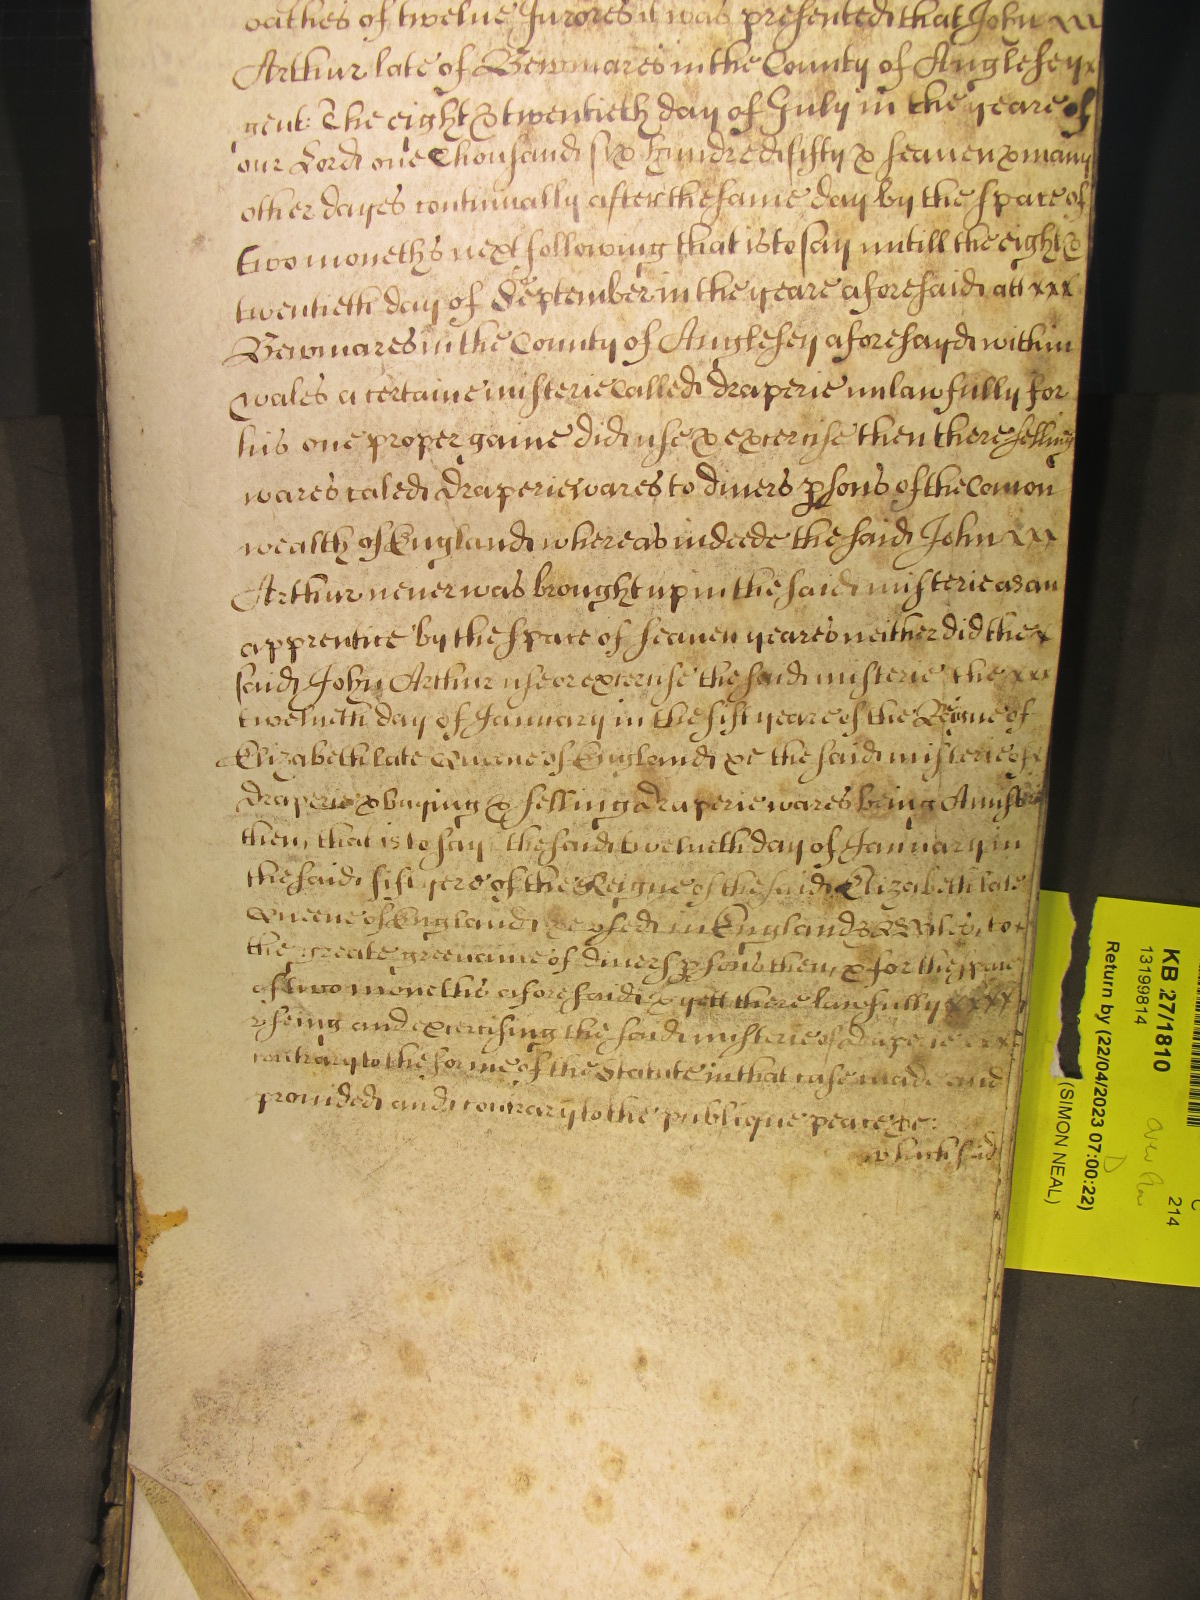 oathes of twelue Jurores it was presented that John xx
Arthur late of Bewmares in the County of Anglesey x
gent: The eight & twentieth day of July in the yeare of
our Lord one Thousand six hundred fifty & seauen & many
other dayes continually after the same day by the space of
two moneths next following that is to say untill the eight &
twentieth day of September in the yeare aforesaid att xxx
Bewmares in the County of Anglesey aforesayd within
Wales a certaine misterie called draperie unlawfully for
his one proper gaine did use & exercise then there selling
wares caled draperie wares to diuers psons of the Comon
wealth of England whereas indeede the said John xxx
Arthur neuer was brought up in the said misterie as an
apprentice by the space of seauen yeares neither did the x
said John Arthur use or exercise the said misterie the xxx
twelueth day of January in the fift yeare of the Reigne of
Elizabeth late Queene of England &c the said misterie of x
draperie & buying & selling draperie wares being A misterie
then, that is to say the said twelueth day of January in
the said fift yere of the Reigne of the said Elizabeth late
Queene of England &c vsed in England & Wales, to x
the greate greeuance of diuers psons then, & for the space
of two moneths aforesaid & yett there lawfully xxxx
vseing and exercising the said misterie of draperie xxx
contrary to the forme of the Statute in that case made and
prouided and contrary to the publique peace &c:
which said
KB 27/1810
13199814
Return by (22/04/2023 07:00:22)
(SIMON NEAL)
214